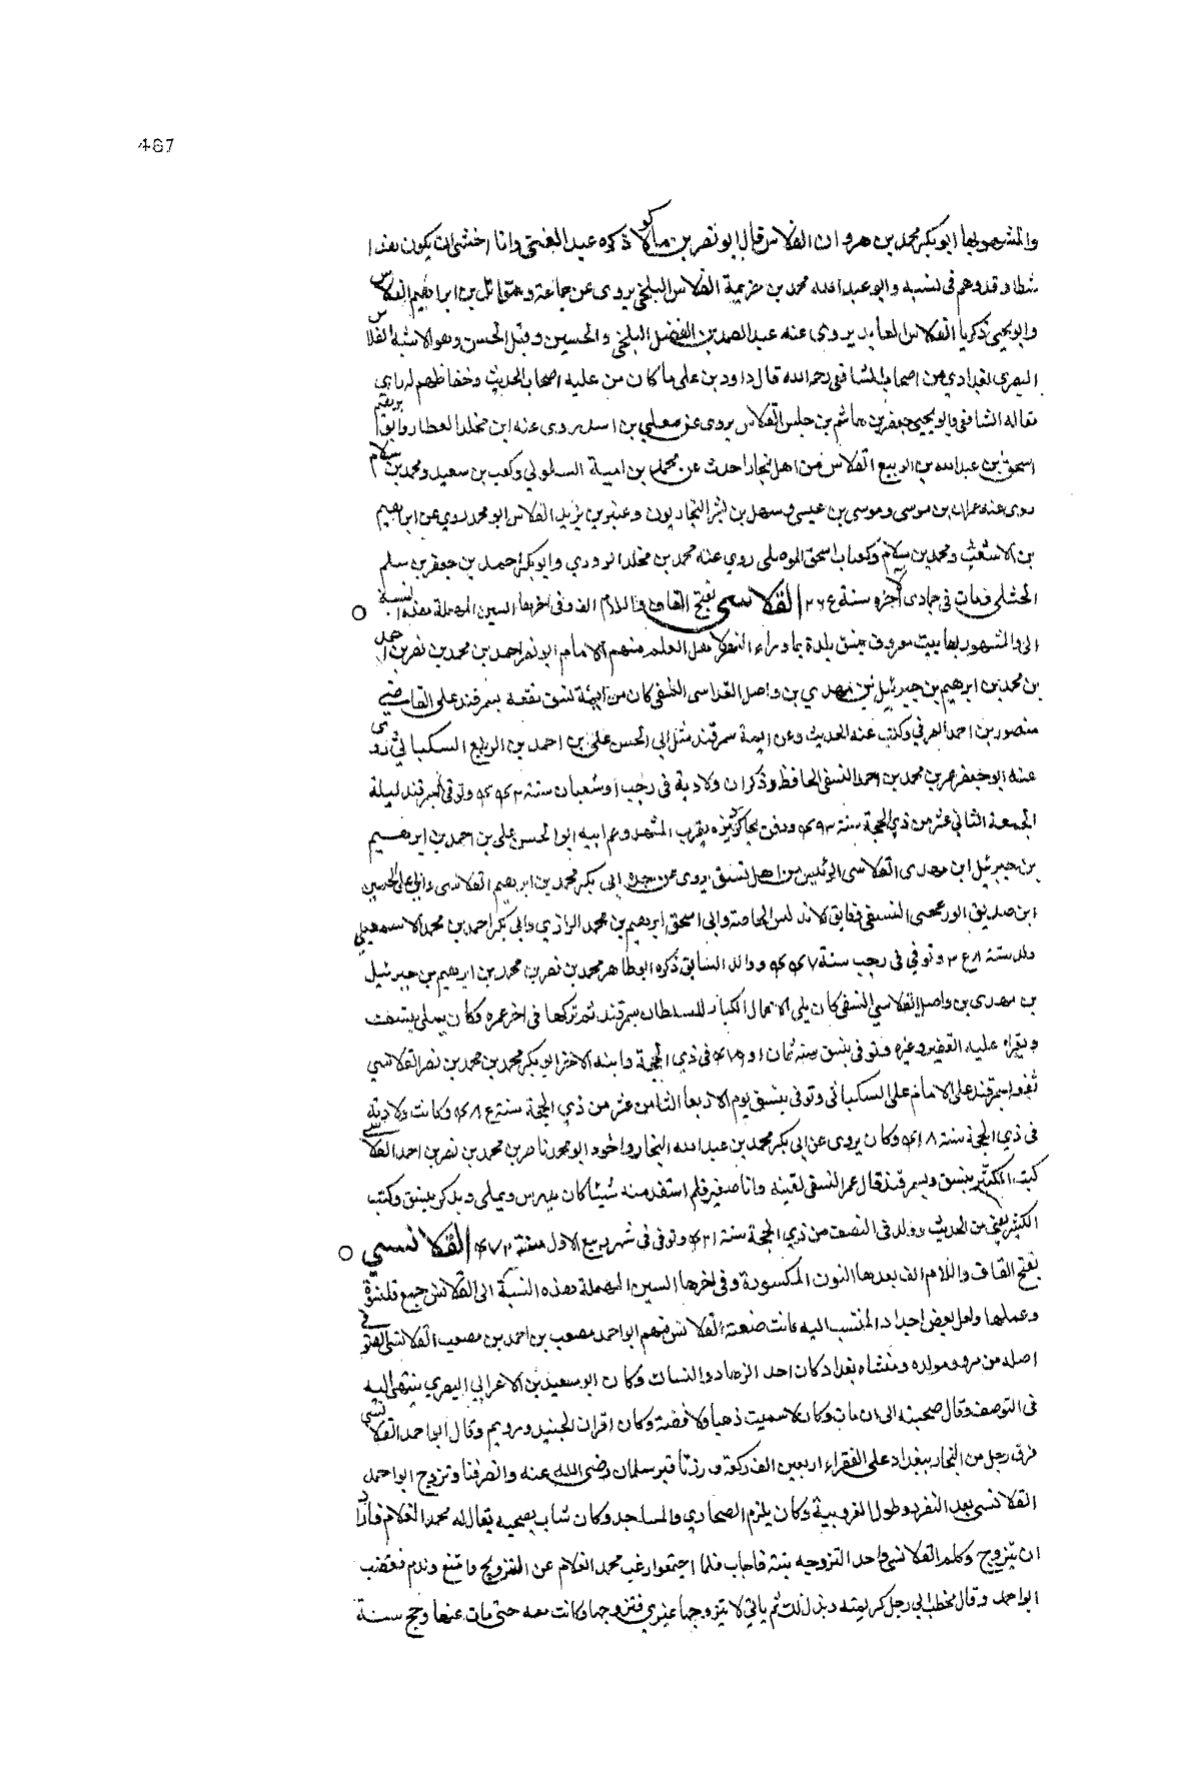 467
والمشهور بها ابو بكر محمد بن هرون الفلاس قال ابو نصر بن ماكولا ذكره عبد الغني وانا اخشى ان يكون هذا
وقد وهم فى نسبه وابو عبد الله محمد بن خزيمة الفلاس البلخي يروى عن جماعة وهو مقاتل بن ابراهيم الفلاس
وابو يحيى زكريا الفلاس العابد يروى عنه عبد الصمد بن الفضل البلخي والحسين وقيل الحسن وهو الاشبه الفلاس
البصرى بغدادي من اصحاب الشافعى رحمه الله قال داود بن على ما كان من علية اصحاب الحديث وحفاظهم له راى
قاله الشافعى وابو يحيى جعفر بن هاشم بن الفلاس يروى عن معلي بن اسد يروى عنه ابن مخلد العطار وابو
اسحق بن عبد الله بن الربيع الفلاس من اهل بخارا حدث عن محمد بن امية السلولي وكعب بن سعيد ومحمد بن سلام
روى عنه عمران بن موسى وموسى بن عيسى وسهل بن بشر البخاريون وعنبر بن يزيد الفلاس ابو محمد روي عن ابراهيم
بن الاشعث ومحمد بن سلام وكعاب اسحق الموصلى روي عنه محمد بن مخلد الدوري وابو بكر احمد بن جعفر بن سلم
الختلى ومات في جمادى الآخرة سنة ٢٦٤ القلاسى بفتح القاف واللام الف وفى اخرها السين المهملة هذه النسبة ○
الى والمشهور بها بيت معروف بنسف بلدة بما وراء النهر لاهل العلم منهم الامام ابو نصر احمد بن محمد بن نصر بن احمد
بن محمد بن ابرهيم بن جبرئيل بن مهدي بن واصل القلاسى النسفى كان من ايمة نسف تفقه بسمرقند على القاضي
منصور بن احمد وكتب عنه الحديث وعن ايمة سمرقند مثل ابي الحسن على بن احمد بن الربيع السنكباثي روى
عنه ابو حفص عمر بن محمد بن احمد النسفى الحافظ وذكر ان ولادته فى رجب او شعبان سنة وتوفى بسمرقند ليلة
الجمعة الثاني عشر من ذي الحجة سنة ٤٩٣ ودفن بجاكرديزه بقرب المشهد وعم ابيه ابو الحسن على بن احمد بن ابرهيم
بن جبرئيل ابن مهدى القلاسى الرئيس من اهل نسف يروى عن جده ابى بكر محمد بن ابرهيم القلاسى وابي على الحسين
ابن صديق النسفى وابى اسحق ابرهيم بن محمد الرازي وابي بكر احمد بن محمد الاسمعيلي
ولد سنة ٣٤٨ وتوفي فى رجب سنة ووالد السابق ذكره ابو طاهر محمد بن نصر بن محمد بن ابرهيم بن جبرئيل
بن مهدى بن واصل القلاسي النسفى كان يلى الاعمال الكبار للسلطان بسمرقند ثم تركها فى اخر عمره وكان يملى بنسف
ويقراء عليه التفسير وغيره وتوفى بنسف سنة ثمان او فى ذي الحجة وابنه الاخر ابو بكر محمد بن محمد بن نصر القلاسي
تفقه بسمرقند على الامام على السنكباثى وتوفى بنسف يوم الاربعا الثامن عشر من ذي الحجة سنة وكانت ولادته
فى ذي الحجة سنة وكان يروى عن ابى بكر محمد بن عبد الله النجار واخوه ابو محمد ناصر بن محمد بن نصر بن احمد القلاسى
كتب الكثير بنسف وبسمرقند قال عمر النسفى لقيته وانا صغير فلم استفد منه شيئا كان يدرس ويملى ويذكر بنسف وكتب
الكثير يعنى من الحديث وولد فى النصف من ذي الحجة سنة ٤٣١ وتوفى فى شهر ربيع الاول سنة القلانسي ○
بفتح القاف واللام الف بعدها النون المكسورة وفى اخرها السين المهملة هذه النسبة الى القلانس جمع قلنسوة
وعملها ولعل بعض اجداد المنتسب اليه كانت صنعته القلانس منهم ابو احمد مصعب بن احمد بن مصعب القلانسى الصوفى
اصله من مرو ومولده ومنشاه بغداد كان احد الزهاد والنساك وكان ابو سعيد بن الاعرابي البصري ينتهى اليه
فى التوصف وقال صحبته الى ان مات وكان لا يبيت ذهبا ولا فضة وكان اقران الجنيد ورويم وقال ابو احمد القلانسى
فرق رجل من التجار ببغداد على الفقراء اربعين الف وزرنا قبر سلمان رضى الله عنه وانصرفنا وتزوج ابو احمد
القلانسى بعد التفرد وطول العزوبية وكان يلزم الصحاري والمساجد وكان شاب يصحبه يقال له محمد الغلام فاراد
ان يتزوج وكلم القلانسى واحد التزوجه بنته فاجاب فلما اجتمعوا رغب محمد الغلام عن التزويج وامتنع وندم فغضب
ابو احمد وقال يخطب الى رجل كريمته فبذل لك ثم يابى لا يتزوجها غيري فتزوجها وكانت معه حتى مات عنها وحج سنة